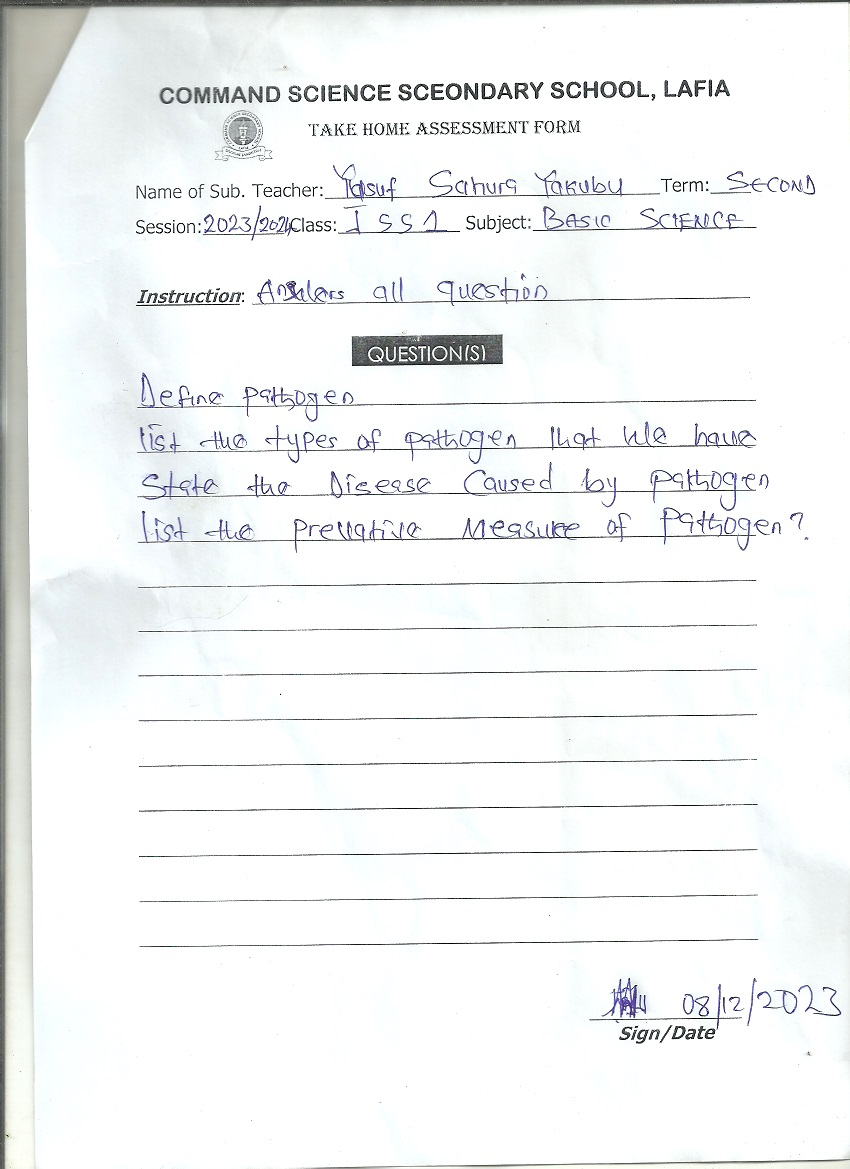 COMMAND SCIENCE SCEONDARY SCHOOL, LAFIA
TAKE HOME ASSESSMENT FORM
Name of Sub. Teacher: Yusuf Sahura Yakubu Term: SECOND
Session: 2023/2024 Class: JSS1 Subject: BASIC SCIENCE
Instruction: Answers all question
QUESTION(S)
Define pathogen
list the types of pathogen that We have
State the Disease Caused by pathogen
list the prevative Measure of pathogen?
08/12/2023
Sign/Date